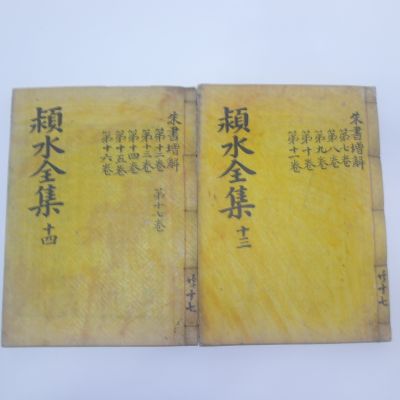 朱書增解
第七卷
第八卷
第九卷
第十卷
第十一卷
潁水全集 十三
共十七
朱書增解
第十二卷
第十三卷
第十四卷
第十五卷
第十六卷
第十七卷
潁水全集 十四
共十七